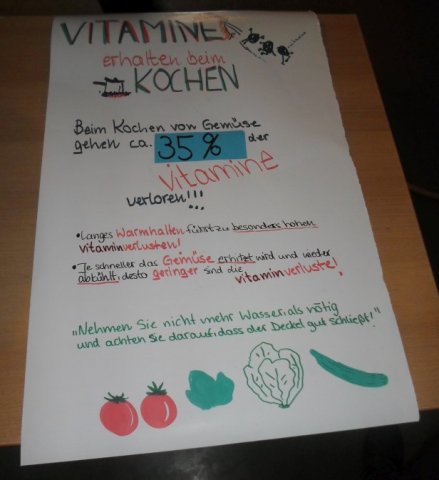 VITAMINE
erhalten beim
KOCHEN
Beim Kochen von Gemüse
gehen ca. 35% der
Vitamine
verloren!!!
• Langes Warmhalten führt zu besonders hohen
vitaminverlusten!
• Je schneller das Gemüse erhitzt wird und wieder
abkühlt, desto geringer sind die vitaminverluste!
„Nehmen Sie nicht mehr Wasser als nötig
und achten Sie darauf, dass der Deckel gut schließt!"